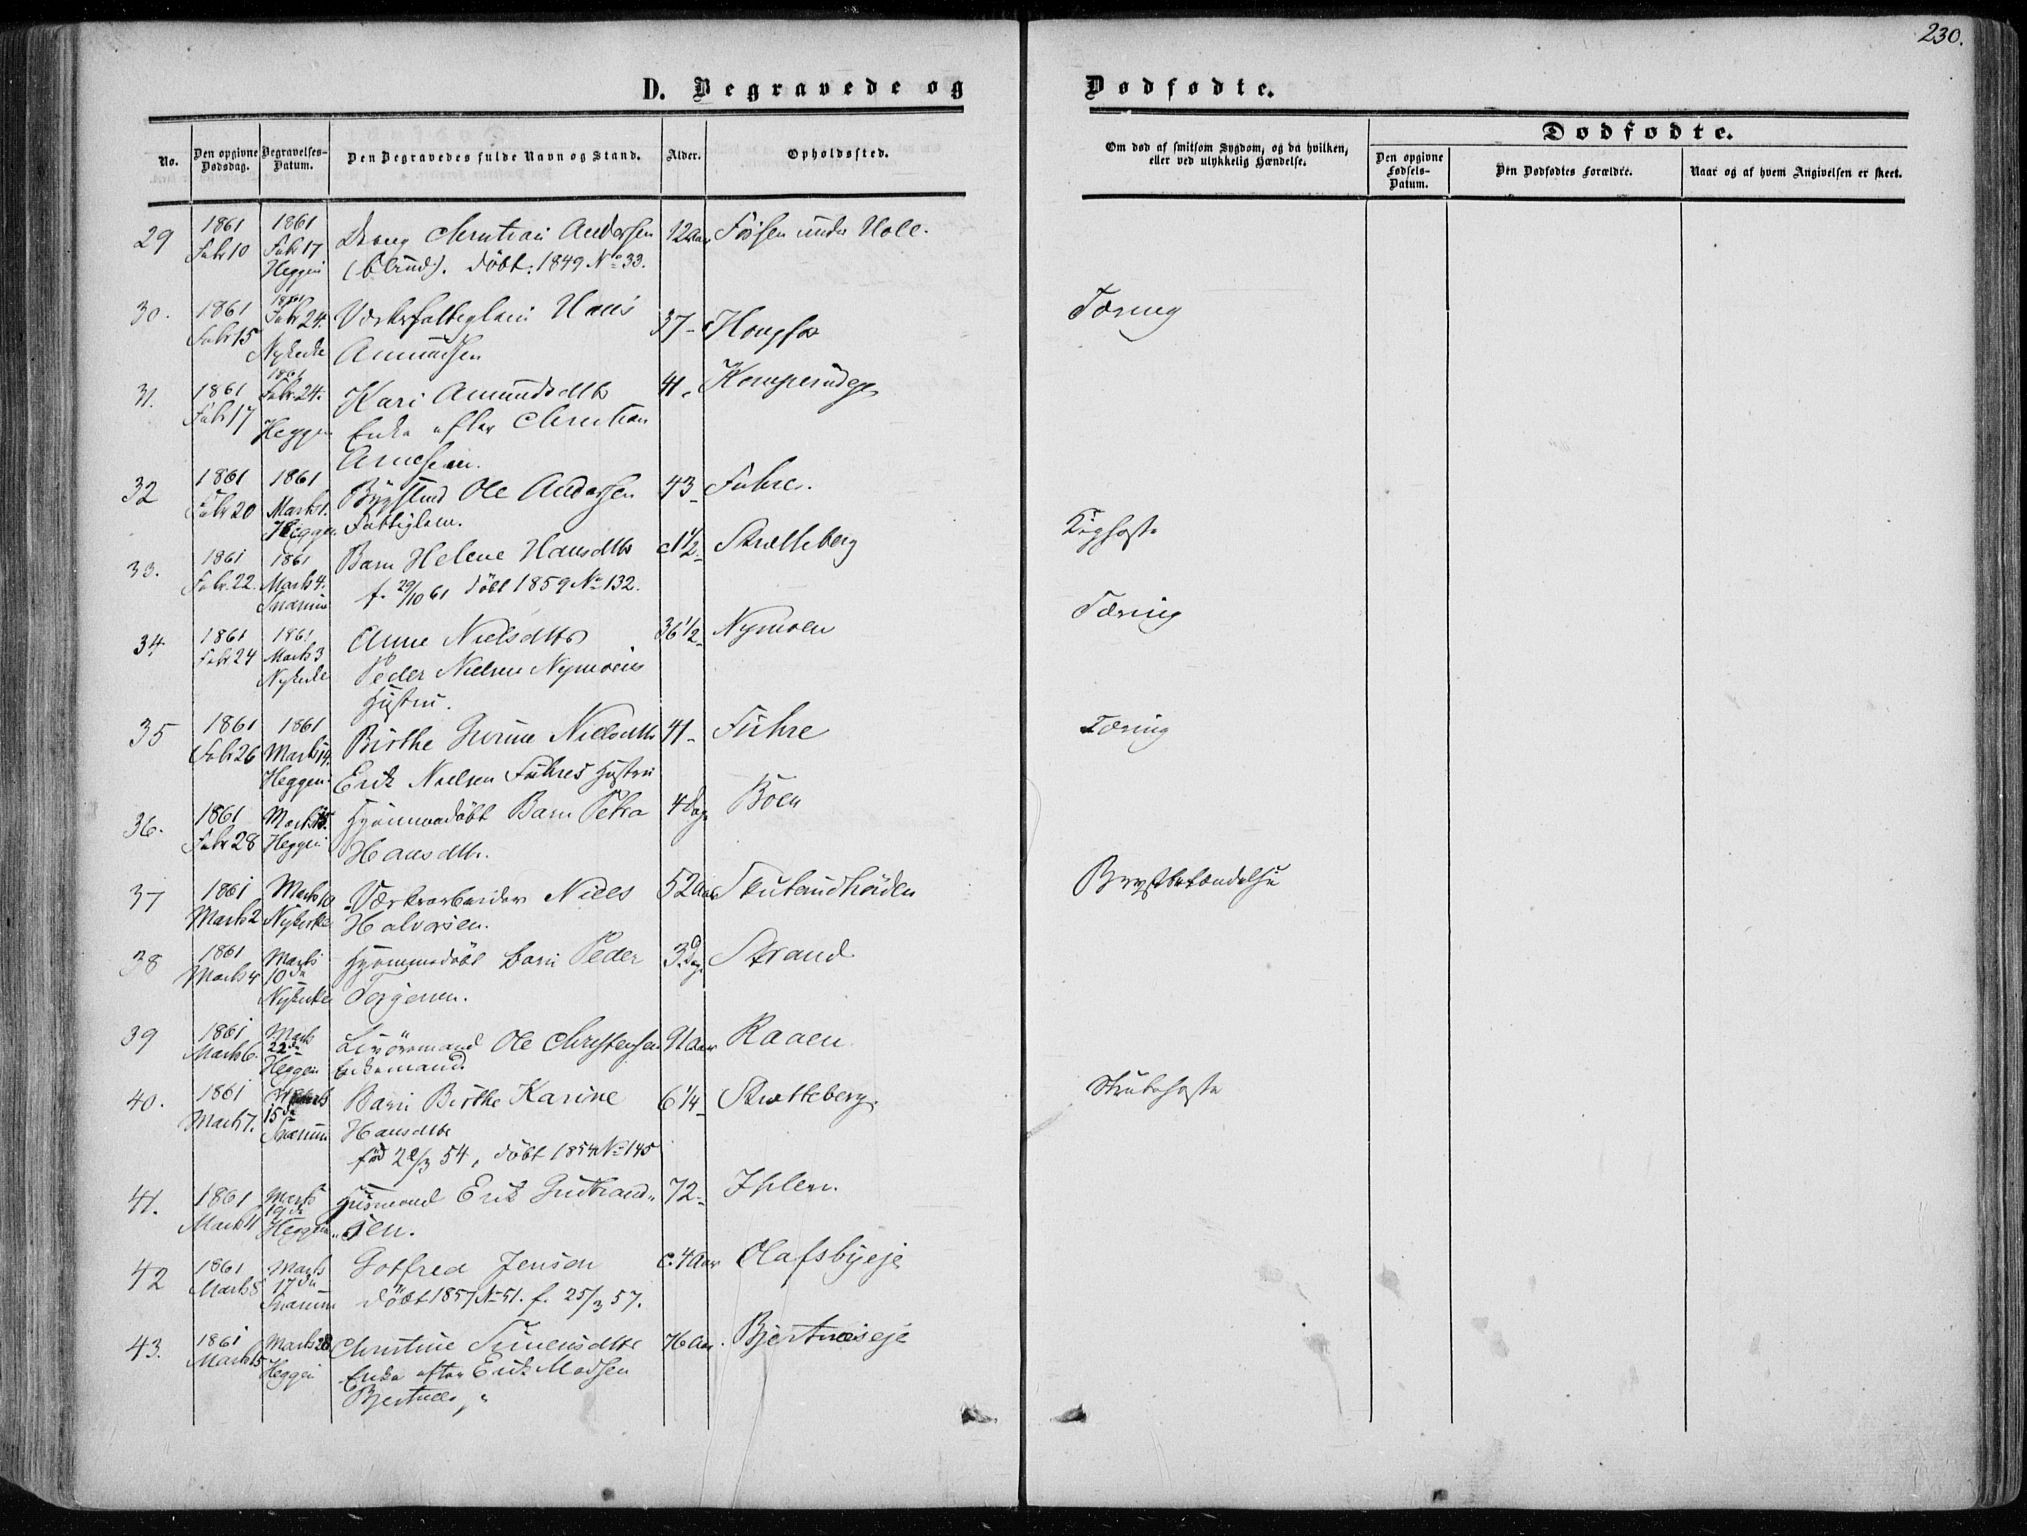 230.
D. Begravede og
Dødfødte.
No.
Den opgivne Dødsdag.
Begravelses-Datum.
Den Begravedes fulde Navn og Stand.
Alder.
Opholdssted.
Om død af smitsom Sygdom, og da hvilken, eller ved ulykkelig Hændelse.
Dødfødte.
Den opgivne Fødsels-Datum.
Den Dødfødtes Forældre.
Naar og af hvem Angivelsen er skeet.
29 1861 1861 Dreng Christian Andersen 12 Aar under Hole.
Febr 10 Febr 17 (blind). døbt 1849 No 33.
Heggen
30. 1861 1861 Hans 37 - Tæring
Febr 15 Febr 24.
Nykirke
31. 1861 1861 Kari Amundsdtr 41 -
Febr 17 Febr 24. Enke efter Christian
Heggen Arnesen.
32 1861 1861 Ole Andersen 43 - Fuhre.
Febr 20 Marts 1. Fattiglem.
Heggen
33. 1861 1861 Barn Helene Hansdtr c 1 1/2 - Strætteberg Kighoste
Febr. 22. Marts 4. f. 29/10 61 døbt 1859 No 132.
Snarum
34 1861 1861 Anne Nielsdtr 36 1/2 - Nymoen Tæring
Febr 24 Marts 3 Peder Nielsen Nymoens
Nykirke Hustru.
35 1861 1861 Birthe Gurine Nielsdtr 41 - Fuhre Tæring
Febr 26 Marts 14. Erik Nielsen Fuhres Hustru
Heggen
36. 1861 Marts 15. Hjemmedøbt Barn Petra 4 Dage Bøen
Febr 28 Heggen Hansdtr.
37 1861 Marts 10 Værksarbeider Niels 52 Aar Brystbetændelse
Marts 2 Nykirke Halvorsen.
38 1861 Marts Hjemmedøbt Barn Peder 3 Dage Strand
Marts 4 10de
Nykirke Torgersen.
39 1861 Marts Livøremand Ole Christensen 91 Aar Raaen.
Marts 6. 22de Enkemand.
Heggen
40. 1861 Marts Barn Birthe Karine 6 1/4 - Strætteberg. Strubehoste
Marts 7. 15de Hansdtr
Snarum
død 1854 No 145
41. 1861 Marts Husmand Erik Gulbrand- 72 - Ihlen.
Marts 11 19de -sen.
Heggen
42 1861 Marts Gotfred Jensen c. 4 Aar Olafsbyeje
Marts 8. 17de døbt 1857 No 51. f. 25/3 57.
Snarum
43. 1861 Marts 28 Christine Simensdtr 76 Aar. Bjertnæseje
Marts 15 Heggen Enke efter Erik Madsen
Bjertnæs